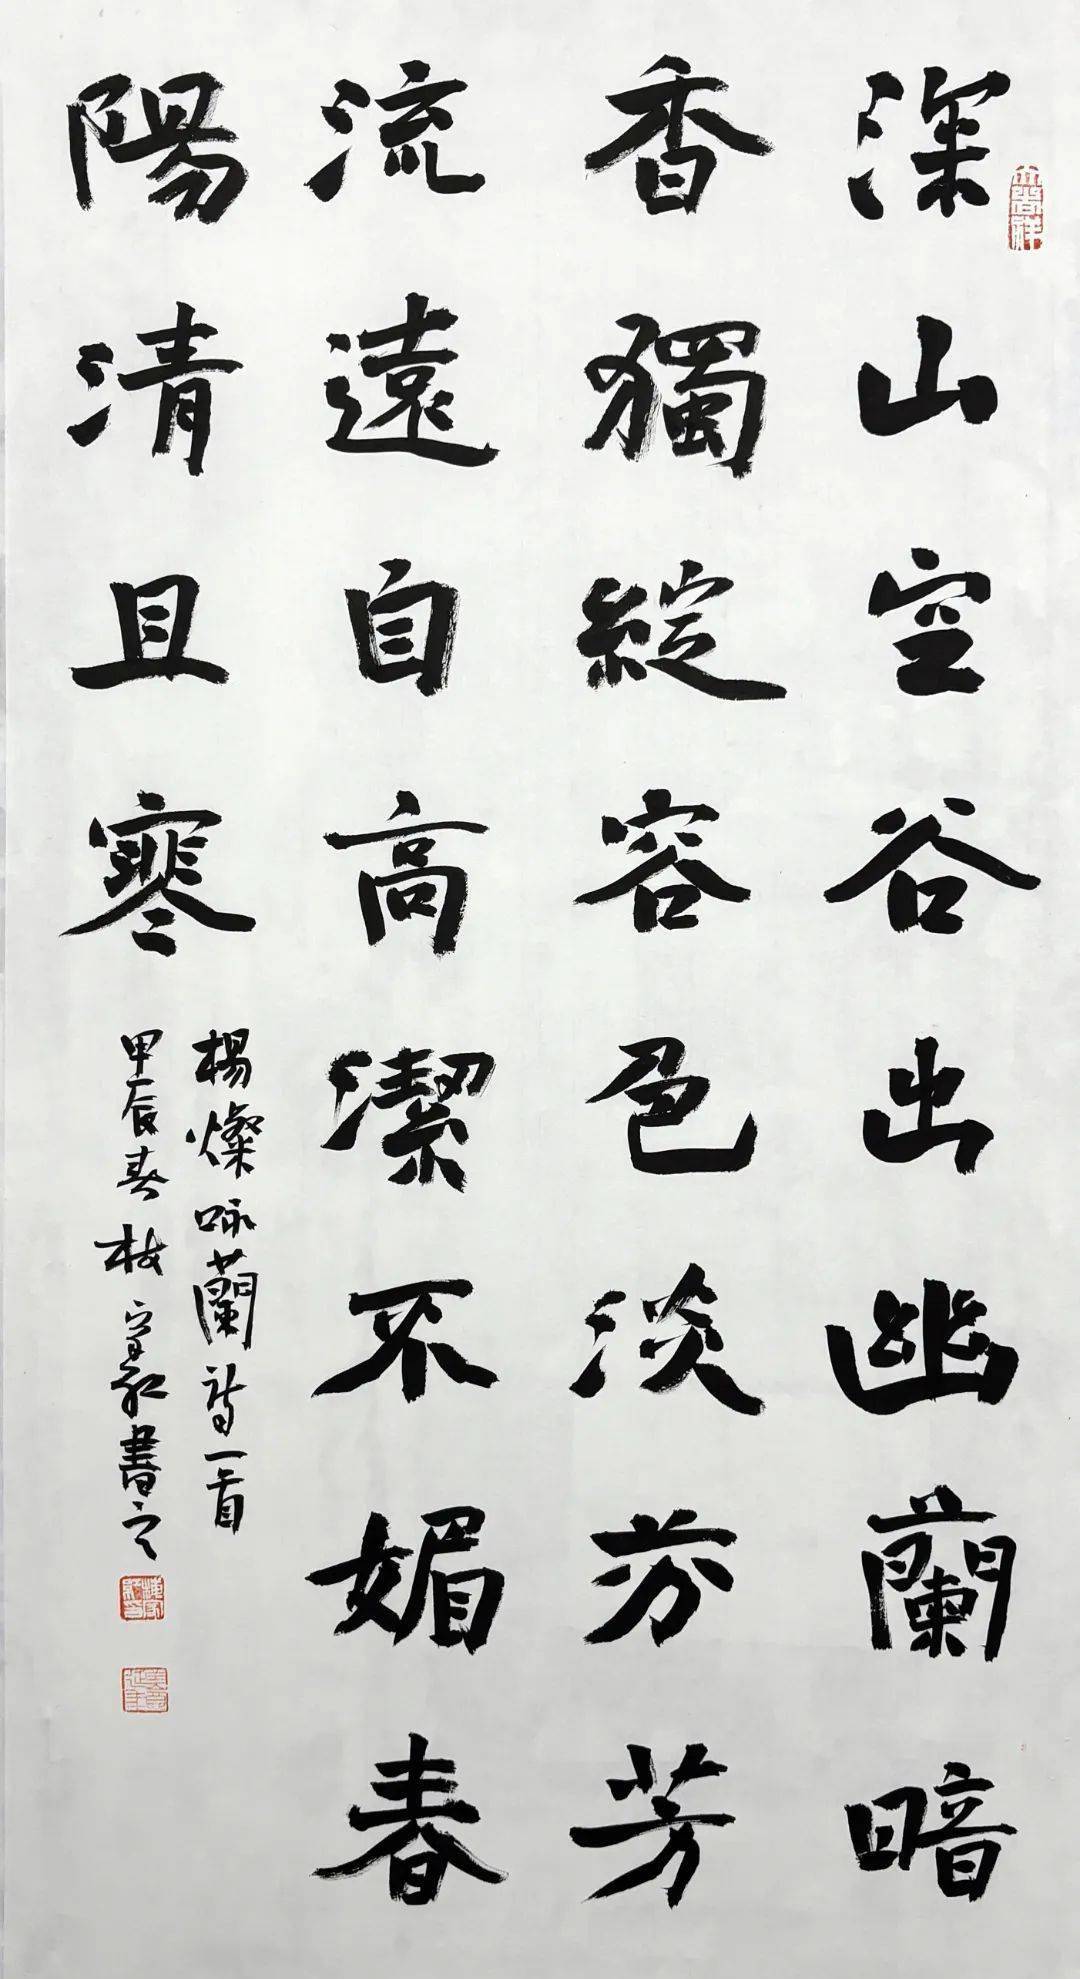 深山空谷出幽蘭暗
香獨綻容色淡芬芳
流遠自高潔不媚春
陽清且寒
楊燦咏蘭詩一首
甲辰春枝家紅書之